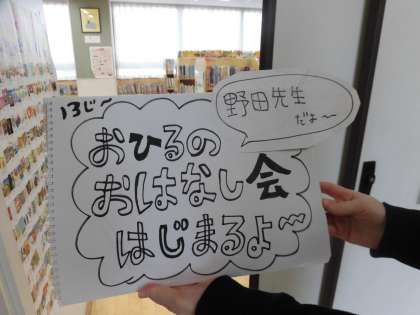 13じ～
野田先生
だよ～
おひるの
おはなし会
はじまるよ～